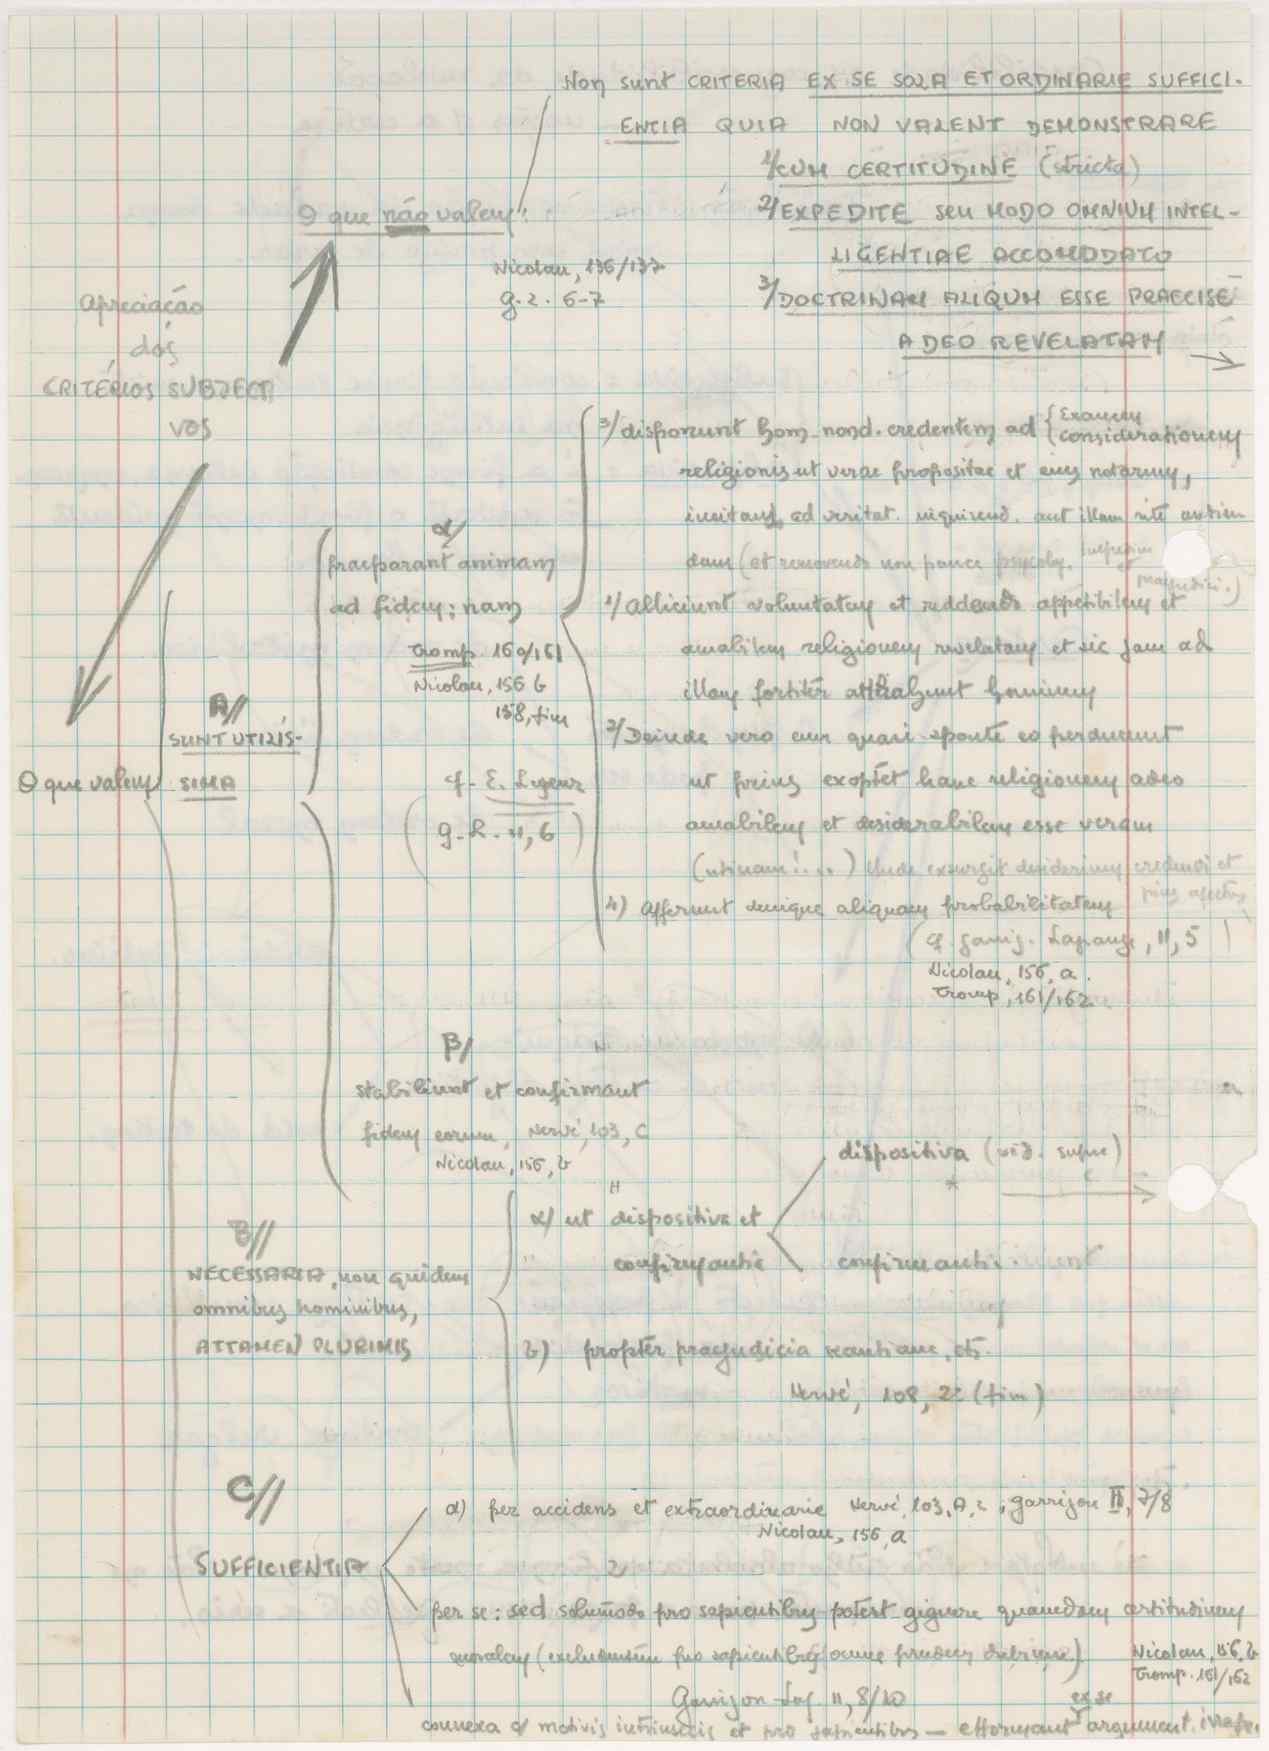 Non sunt CRITERIA EX SE SOLA ET ORDINARIE SUFFICI-
ENTIA QUIA NON VALENT DEMONSTRARE
1/ CUM CERTITUDINE (stricta)
O que não valem:
2/ EXPEDITE seu MODO OMNIUM INTEL-
LIGENTIAE ACCOMODATO
Nicolau, 136/137
g. 2. 6-7
3/ DOCTRINAM ALIQUM ESSE PRAECISE
A DEO REVELATAM
Apreciação
dos
CRITÉRIOS SUBJECTI
VOS
3/ disponunt hom. nond. credentem ad { Examen
considerationem
religionis ut verae propositae et eius notarum,
ad veritat. inquirend. aut illam rite
(et removendo non pauca psycholog.
praejudici.)
α/
praeparant animam
ad fidem; nam
Tromp. 160/161
Nicolau, 156 b
158, fim
1/ Alliciunt voluntatem et reddendo appetibilem et
amabilem religionem revelatam et sic jam ad
illam fortiter attrahunt hominem
2/ Deinde vero eum quasi sponte eo perducunt
ut prius exoptet hanc religionem adeo
amabilem et desiderabilem esse veram
(utinam!...) Unde exsurgit desiderium credendi et
pius affectus
4) Afferunt denique aliquam probabilitatem
(cf. Garrig. Lagrange, 11, 5)
Nicolau, 156, a.
Tromp, 161/162
A//
SUNT UTILIS-
SIMA
O que valem
cf. E.
(g. L. 11, 6)
β/
stabiliunt et confirmant
fidem eorum, Hervé, 103, C
Nicolau, 156, b
dispositiva (vid. supra)
α/ ut dispositiva et
confirmantia
confirmanti.
B//
NECESSARIA, non quidem
omnibus hominibus,
ATTAMEN PLURIMIS
b) propter praejudicia etc.
Hervé, 108, 2c (fim)
C//
SUFFICIENTIA
α) per accidens et extraordinarie Hervé, 103, A, 2; Garrigou II, 7/8
Nicolau, 156, a
per se: sed solummodo pro sapientibus potest gignere quamdam certitudinem
moralem (excludentem pro sapientibus omne prudens dubium)
Nicolau, 156, b
Tromp. 161/162
Garrigou-Lag. 11, 8/10
connexa c/ motivis intrinsecis et pro sapientibus — efformant ex se argument.